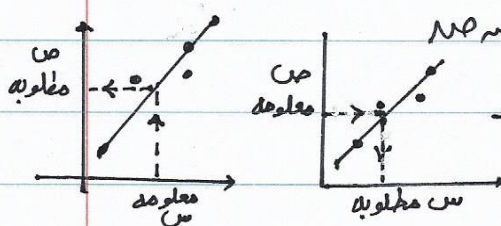 ص
مطلوبه
معلومه
س
ص
معلومه
س مطلوبه